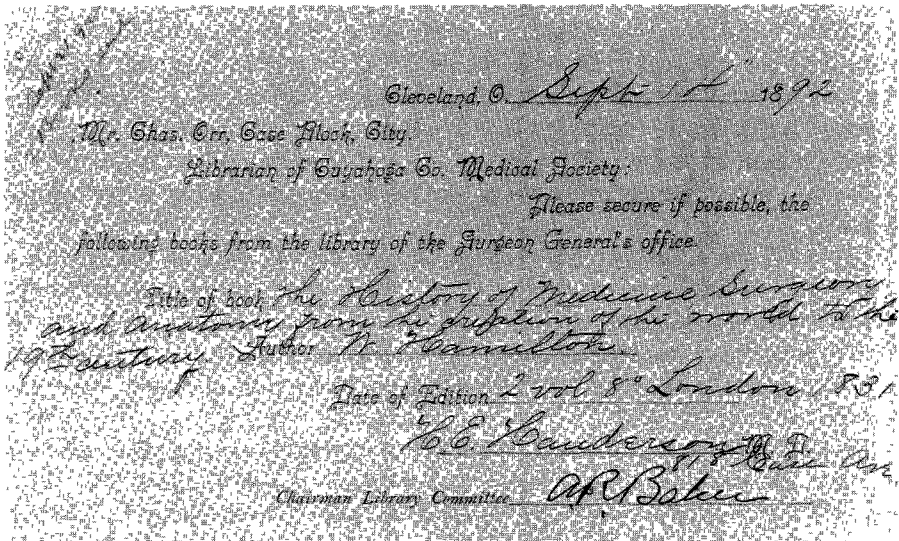 Cleveland, O. Sept 1st 1892
Mr. Chas. Orr, Case Block, City.
Librarian of Cuyahoga Co. Medical Society:
Please secure if possible, the
following books from the library of the Surgeon General's office.
Title of book The History of Medicine Surgery
and Anatomy from the creation of the world to the
19th century Author W Hamilton
Date of Edition 2 vol 8° London 1831
H. E. Handerson M D
Chairman Library Committee A R Baker